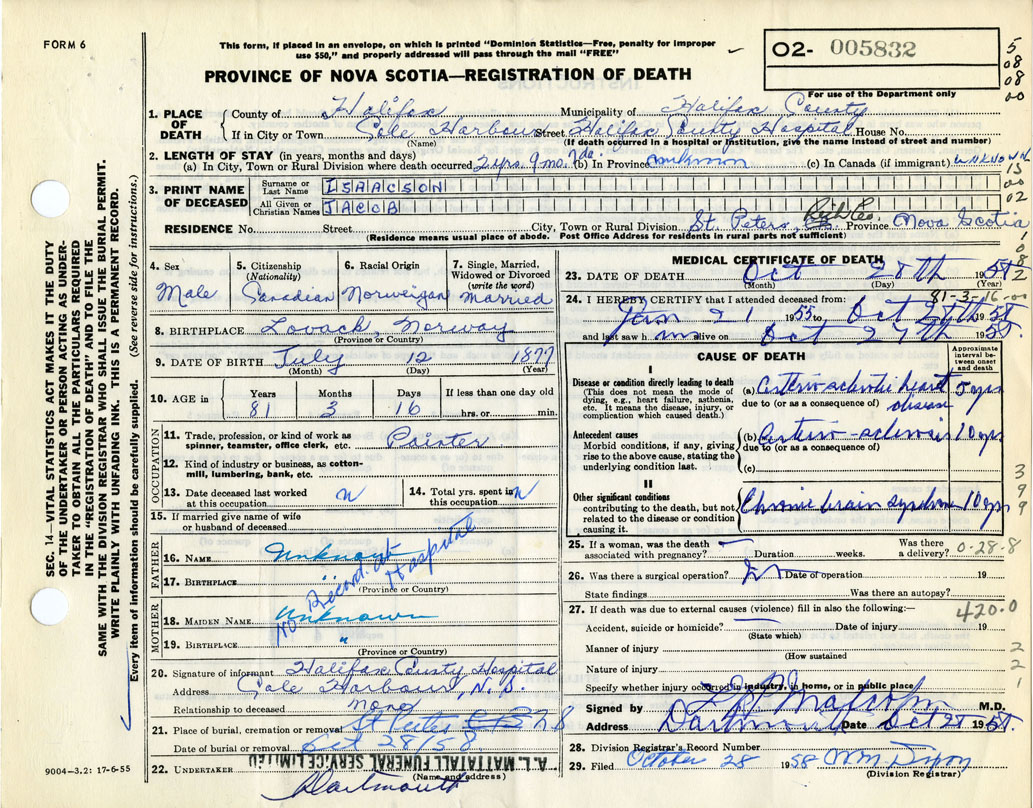 FORM 6
This form, if placed in an envelope, on which is printed "Dominion Statistics—Free, penalty for improper
use $50," and properly addressed will pass through the mail "FREE"
O2- 005832
5
08
08
00
PROVINCE OF NOVA SCOTIA—REGISTRATION OF DEATH
For use of the Department only
1. PLACE OF DEATH
County of Halifax Municipality of Halifax County
If in City or Town Cole Harbour Street Halifax County Hospital House No.
(Name) (If death occurred in a hospital or institution, give the name instead of street and number)
2. LENGTH OF STAY (in years, months and days)
(a) In City, Town or Rural Division where death occurred 2 yrs. 9 mo. 7 da. (b) In Province unknown (c) In Canada (if immigrant) UNKNOWN
3. PRINT NAME OF DECEASED
Surname or Last Name ISAACSON
All Given or Christian Names JACOB
15
00
02
RESIDENCE No. Street City, Town or Rural Division St. Peters, Rich Co. Province Nova Scotia
(Residence means usual place of abode. Post Office Address for residents in rural parts not sufficient)
4. Sex Male
5. Citizenship (Nationality) Canadian
6. Racial Origin Norweigan
7. Single, Married, Widowed or Divorced (write the word) Married
8. BIRTHPLACE Norway
(Province or Country)
9. DATE OF BIRTH July 12 1877
(Month) (Day) (Year)
10. AGE in Years 81 Months 3 Days 16 If less than one day hrs. or min.
OCCUPATION
11. Trade, profession, or kind of work as spinner, teamster, office clerk, etc. Painter
12. Kind of industry or business, as cotton-mill, lumbering, bank, etc.
13. Date deceased last worked at this occupation n
14. Total yrs. spent in this occupation n
15. If married give name of wife or husband of deceased
FATHER
16. NAME Unknown
17. BIRTHPLACE "
(Province or Country)
No Record at Hospital
MOTHER
18. MAIDEN NAME Unknown
19. BIRTHPLACE "
(Province or Country)
20. Signature of informant Halifax County Hospital
Address Cole Harbour, N.S.
Relationship to deceased none
21. Place of burial, cremation or removal St Peters
Date of burial or removal Oct 28/58.
22. UNDERTAKER A. L. MATTATALL FUNERAL SERVICE LIMITED
(Name and address)
Dartmouth
MEDICAL CERTIFICATE OF DEATH
23. DATE OF DEATH Oct 28th 1958
(Month) (Day) (Year)
81-3-16
24. I HEREBY CERTIFY that I attended deceased from:
Jan 21 1955 to Oct 27th 1958
and last saw him alive on Oct 27th 1958.
CAUSE OF DEATH
Approximate interval between onset and death
I
Disease or condition directly leading to death
(This does not mean the mode of dying, e.g., heart failure, asthenia, etc. It means the disease, injury, or complication which caused death.)
(a) Arterio-sclerotic heart disease 5 yrs
due to (or as a consequence of)
Antecedent causes
Morbid conditions, if any, giving rise to the above cause, stating the underlying condition last.
(b) Arterio-sclerosis 10 yrs
due to (or as a consequence of)
(c)
II
Other significant conditions
contributing to the death, but not related to the disease or condition causing it.
Chronic brain syndrome 10 yrs
3
9
9
25. If a woman, was the death associated with pregnancy? Duration weeks. Was there a delivery? 0-28-8
26. Was there a surgical operation? Date of operation 19
State findings Was there an autopsy?
27. If death was due to external causes (violence) fill in also the following:—
420.0
Accident, suicide or homicide? Date of injury 19
(State which)
Manner of injury
(How sustained
Nature of injury
2
2
1
Specify whether injury occurred in industry, in home, or in public place
Signed by M.D.
Address Dartmouth Date Oct 28 1958.
28. Division Registrar's Record Number
29. Filed October 28 1958
(Division Registrar)
SEC. 14—VITAL STATISTICS ACT MAKES IT THE DUTY
OF THE UNDERTAKER OR PERSON ACTING AS UNDER-
TAKER TO OBTAIN ALL THE PARTICULARS REQUIRED
IN THE "REGISTRATION OF DEATH" AND TO FILE THE
SAME WITH THE DIVISION REGISTRAR WHO SHALL ISSUE THE BURIAL PERMIT.
WRITE PLAINLY WITH UNFADING INK. THIS IS A PERMANENT RECORD.
Every item of information should be carefully supplied. (See reverse side for instructions.)
9004—3.2: 17-6-55